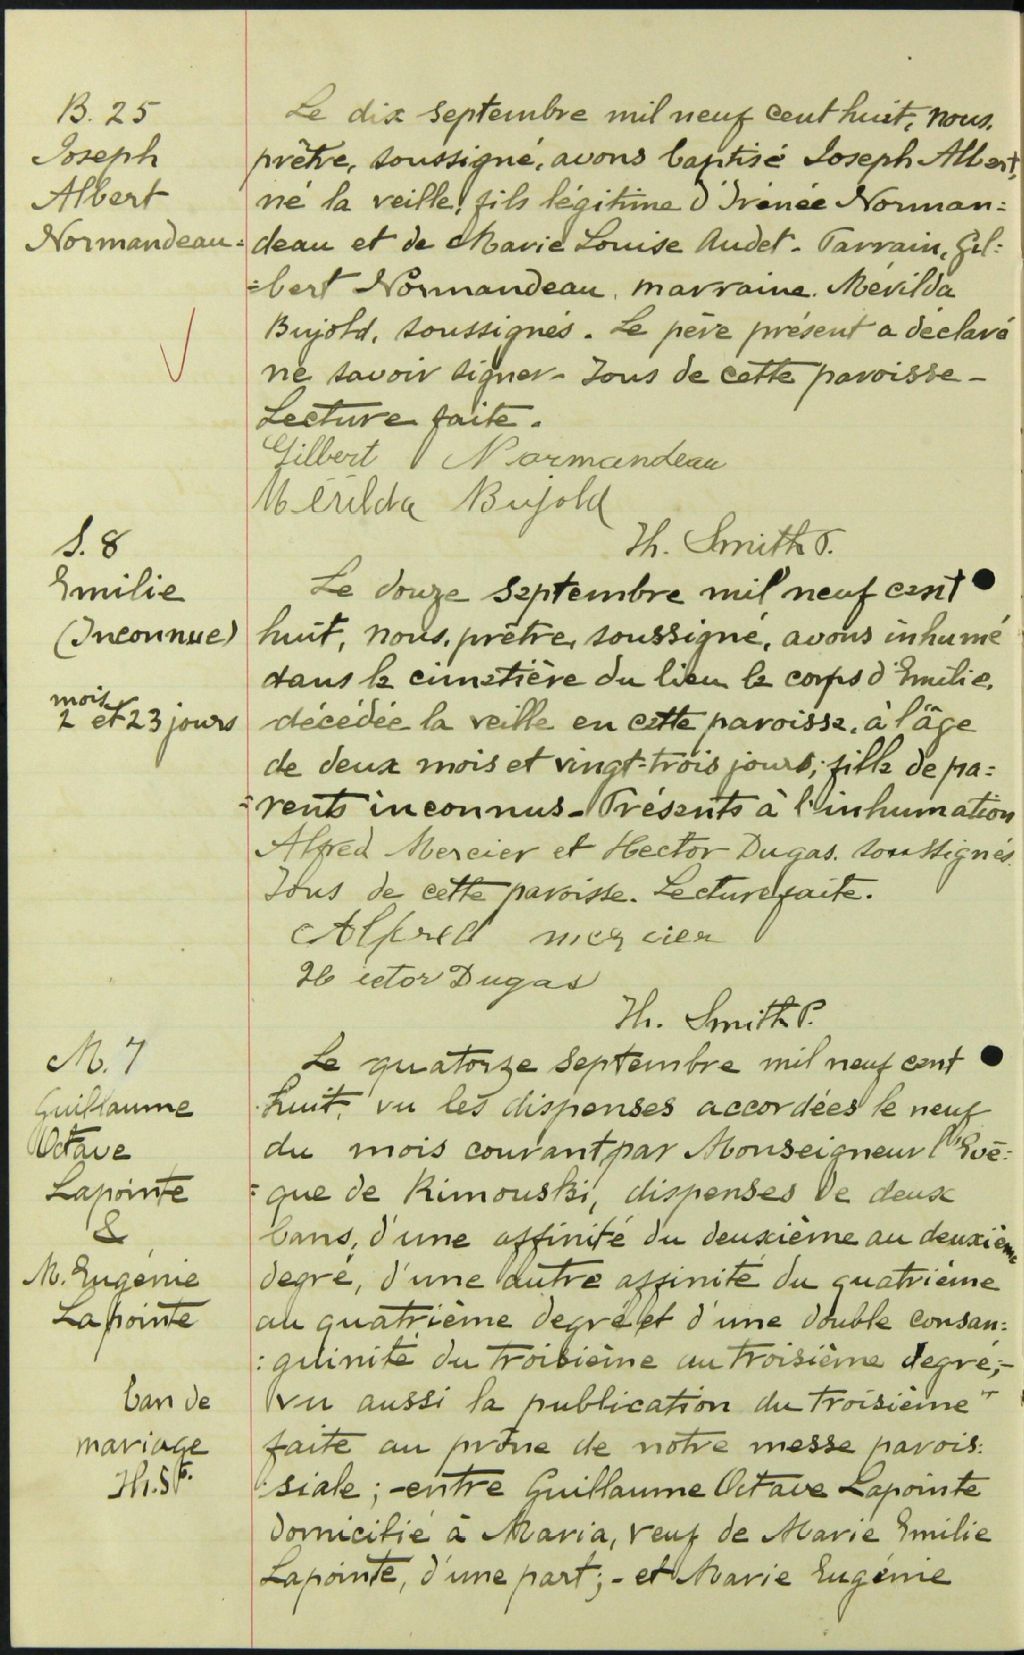 B. 25
Joseph
Albert
Normandeau =
Le dix septembre mil neuf cent huit, nous,
prêtre, soussigné, avons baptisé Joseph Albert,
né la veille, fils légitime d'Irénée Norman=
deau et de Marie Louise Audet - Parrain, Gil=
=bert Normandeau, marraine, Mérilda
Bujold, soussignés. Le père présent a déclaré
ne savoir signer - Tous de cette paroisse -
Lecture faite.
Gilbert Normandeau
Mérilda Bujold
Th. Smith P.
S. 8
Emilie
(Inconnue)
mois
2 et 23 jours
Le douze septembre mil neuf cent
huit, nous, prêtre, soussigné, avons inhumé
dans le cimetière du lieu le corps d'Emilie,
décédée la veille en cette paroisse, à l'âge
de deux mois et vingt-trois jours, fille de pa=
=rents inconnus - Présents à l'inhumation
Alfred Mercier et Hector Dugas, soussignés.
Tous de cette paroisse. Lecture faite.
Alfred mercier
Hector Dugas
Th. Smith P.
M. 7
Guillaume
Octave
Lapointe
&
M. Eugénie
Lapointe
ban de
mariage
Th. S P.
Le quatorze septembre mil neuf cent
huit, vu les dispenses accordées le neuf
du mois courant par Monseigneur l'Evê=
=que de Rimouski, dispenses de deux
bans, d'une affinité du deuxième au deuxième
degré, d'une autre affinité du quatrième
au quatrième degré et d'une double consan=
:guinité du troisième au troisième degré;-
vu aussi la publication du troisième
faite au prône de notre messe parois:
siale ; -entre Guillaume Octave Lapointe
domicilié à Maria, veuf de Marie Emilie
Lapointe, d'une part; - et Marie Eugénie